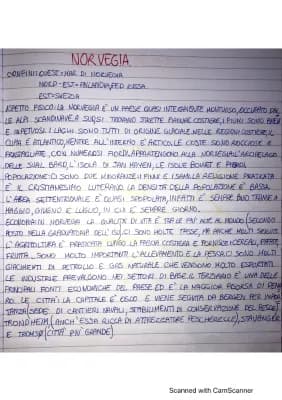 NORVEGIA
CONFINI: OVEST = MAR DI NORVEGIA
NORD-EST = FINLANDIA, FED. RUSSA
EST = SVEZIA
ASPETTO FISICO: LA NORVEGIA È UN PAESE QUASI INTERAMENTE MONTUOSO, OCCUPATO DAL
LE ALPI SCANDINAVE. A SUD SI TROVANO STRETTE PIANURE COSTIERE, I FIUMI SONO BREVI
E IMPETUOSI. I LAGHI SONO TUTTI DI ORIGINE GLACIALE. NELLE REGIONI COSTIERE, IL
CLIMA È ATLANTICO, MENTRE ALL'INTERNO È ARTICO. LE COSTE SONO ROCCIOSE E
FRASTAGLIATE, CON NUMEROSI FIORDI. APPARTENGONO ALLA NORVEGIA: L'ARCIPELAGO
DELLE SVALBARD, L'ISOLA DI JAN MAYEN, LE ISOLE BOUVET E
POPOLAZIONE: CI SONO DUE MINORANZE: I FINNI E I SAMI. LA RELIGIONE PRATICATA
È IL CRISTIANESIMO LUTERANO. LA DENSITÀ DELLA POPOLAZIONE È BASSA.
L'AREA SETTENTRIONALE È QUASI SPOPOLATA, INFATTI È SEMPRE BUIO TRANNE A
MAGGIO, GIUGNO E LUGLIO, IN CUI È SEMPRE GIORNO.
ECONOMIA: IN NORVEGIA LA QUALITÀ DI VITA È TRA LE PIÙ ALTE AL MONDO (SECONDO
POSTO NELLA GRADUATORIA DELL'ISU). CI SONO MOLTE TASSE, MA ANCHE MOLTI SERVIZI.
L'AGRICOLTURA È PRATICATA LUNGO LA FASCIA COSTIERA E FORNISCE: CEREALI, PATATE,
FRUTTA. SONO MOLTO IMPORTANTI L'ALLEVAMENTO E LA PESCA. CI SONO MOLTI
GIACIMENTI DI PETROLIO E GAS NATURALE CHE VENGONO MOLTO ESPORTATI.
LE INDUSTRIE PREVALGONO NEI SETTORI DI BASE. IL TERZIARIO È UNA DELLE
PRINCIPALI FONTI ECONOMICHE DEL PAESE ED È LA MAGGIOR RISORSA DI
RO. LE CITTÀ: LA CAPITALE È OSLO E VIENE SEGUITA DA BERGEN PER IMPOR
TANZA (SEDE DI CANTIERI NAVALI, STABILIMENTI DI CONSERVAZIONE DEL PESCE)
TRONDHEIM (ANCH'ESSA RICCA DI ATTREZZATURE PESCHERECCE), STAVANGER
E TROMSØ (CITTÀ PIÙ GRANDE)
Scanned with CamScanner